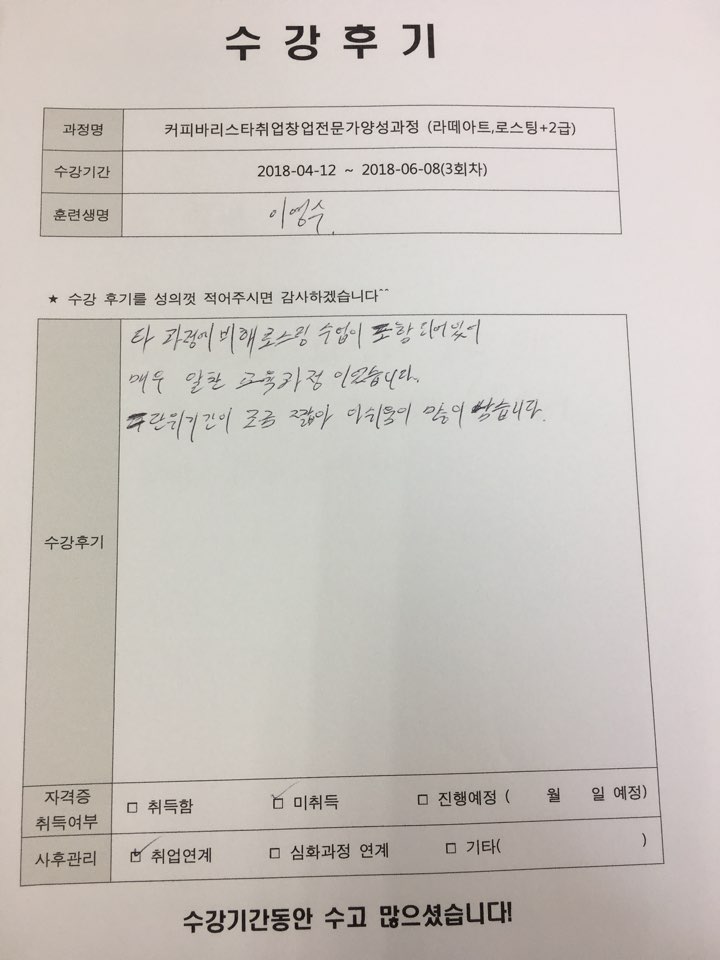 수 강 후 기
과정명 커피바리스타취업창업전문가양성과정 (라떼아트,로스팅+2급)
수강기간 2018-04-12 ~ 2018-06-08(3회차)
훈련생명 이영수.
★ 수강 후기를 성의껏 적어주시면 감사하겠습니다^^
타 과정에 비해 로스팅 수업이 포함 되어 있어
매우 알찬 교육과정 이었습니다.
단위기간이 조금 짧아 아쉬움이 많이 남습니다.
수강후기
자격증 취득여부 □ 취득함 ☑ 미취득 □ 진행예정 ( 월 일 예정)
사후관리 ☑ 취업연계 □ 심화과정 연계 □ 기타( )
수강기간동안 수고 많으셨습니다!